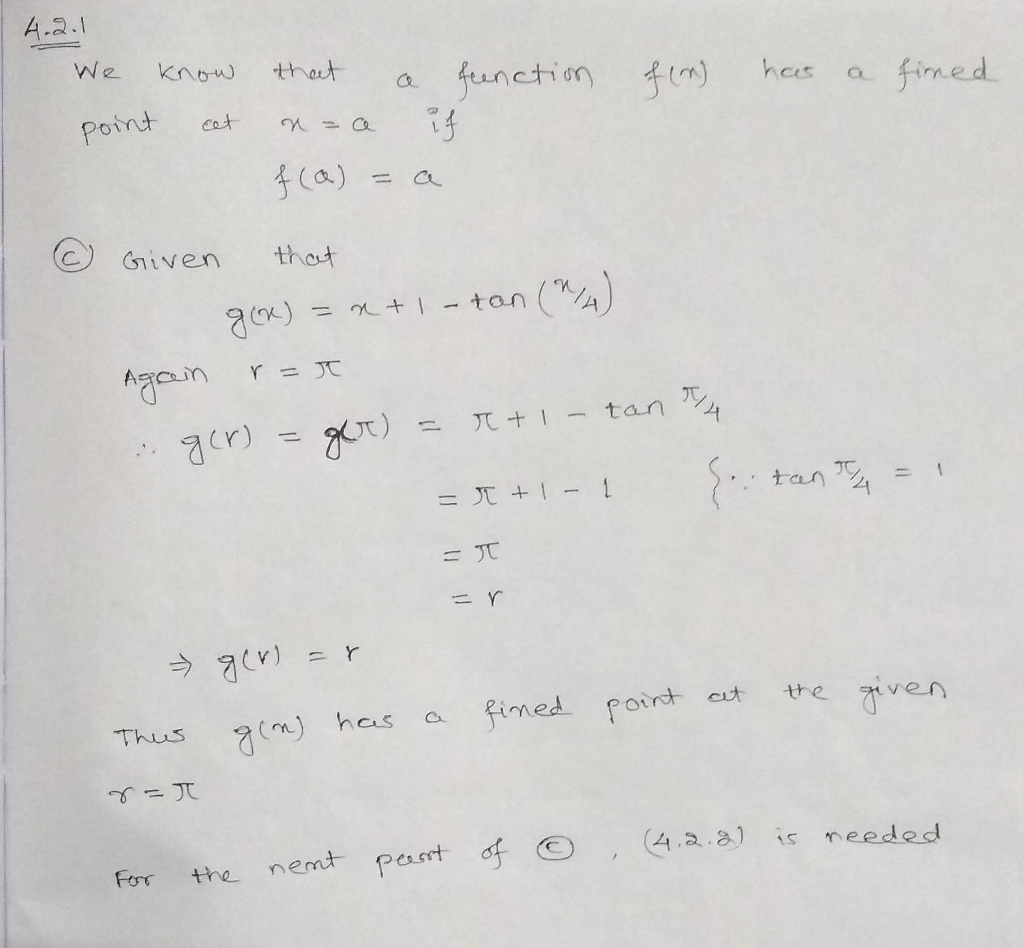 4.2.1
We know that a function f(x) has a fixed
point at x = a if
f(a) = a
ⓒ Given that
g(x) = x + 1 - tan (x/4)
Again r = π
∴ g(r) = g(π) = π + 1 - tan π/4
= π + 1 - 1 {∵ tan π/4 = 1
= π
= r
⇒ g(r) = r
Thus g(x) has a fixed point at the given
r = π
For the next part of ⓒ, (4.2.2) is needed